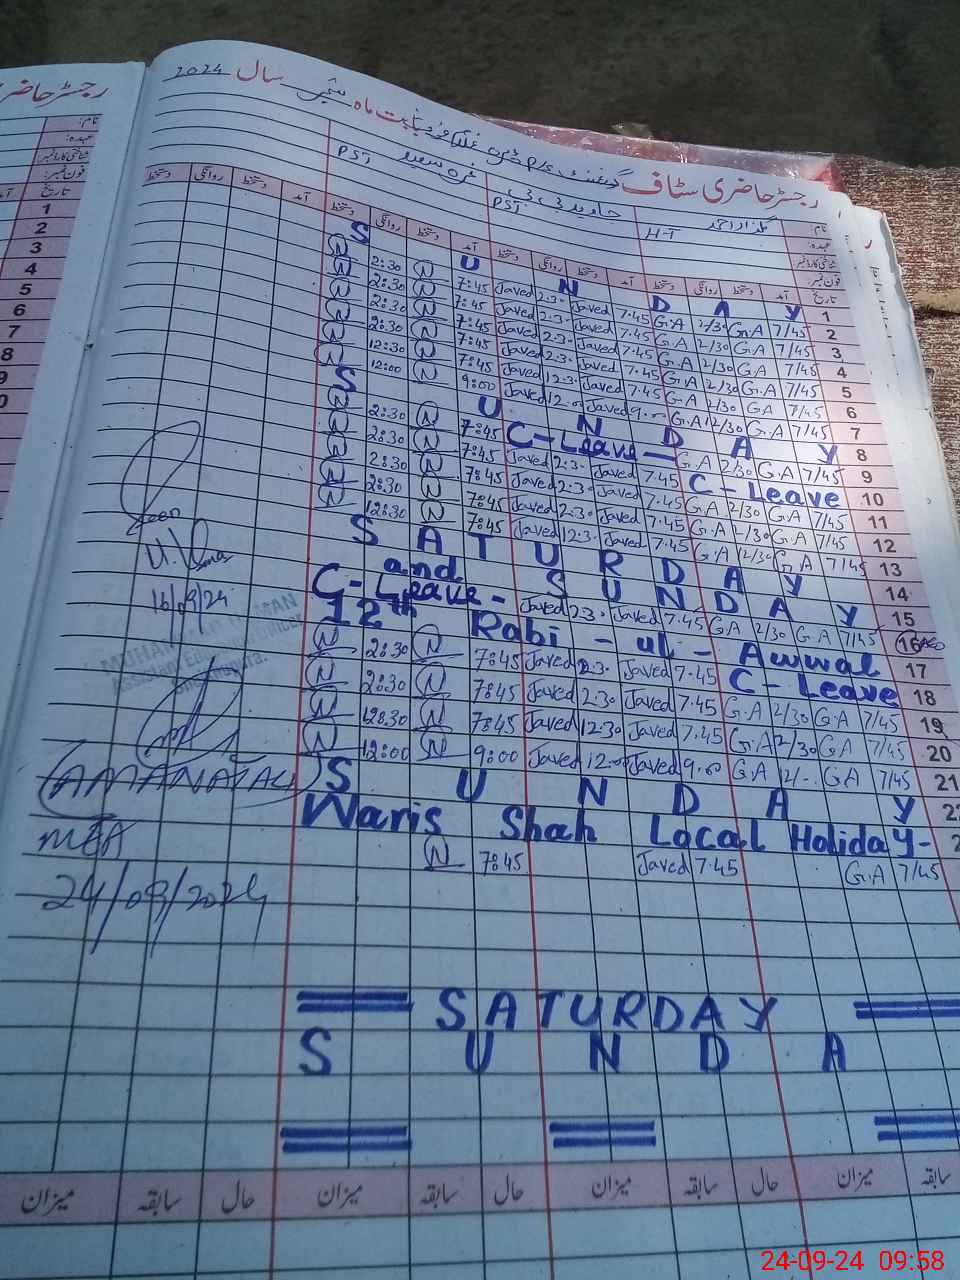 رجسٹر حاضری سٹاف گورنمنٹ P/S ماہ ستمبر سال 2024
رجسٹر حاضری
نام: گلزار احمد جاوید بی بی
عہدہ: H-T PST PST
شناختی کارڈ نمبر
فون نمبر:
تاریخ آمد دستخط روانگی دستخط آمد دستخط روانگی دستخط آمد دستخط روانگی دستخط آمد دستخط روانگی دستخط
1 S U N D A Y
2 7/45 G.A 2/30 G.A 7.45 Javed 2.30 Javed 7:45 N 2:30 N
3 7/45 G.A 2/30 G.A 7.45 Javed 2.30 Javed 7:45 N 2:30 N
4 7/45 G.A 2/30 G.A 7.45 Javed 2.30 Javed 7:45 N 2:30 N
5 7/45 G.A 2/30 G.A 7.45 Javed 2.30 Javed 7:45 N 2:30 N
6 7/45 G.A 2/30 G.A 7.45 Javed 12.30 Javed 7:45 N 12:30 N
7 7/45 G.A 12/30 G.A 9.00 Javed 12.00 Javed 9:00 N 12:00 N
8 S U N D A Y
9 7/45 G.A 2/30 G.A C-Leave- 7:45 N 2:30 N
10 C-Leave 7.45 Javed 2.30 Javed 7:45 N 2:30 N
11 7/45 G.A 2/30 G.A 7.45 Javed 2.30 Javed 7:45 N 2:30 N
12 7/45 G.A 2/30 G.A 7.45 Javed 2.30 Javed 7:45 N 2:30 N
13 7/45 G.A 12/30 G.A 7.45 Javed 12.30 Javed 7:45 N 12:30 N
14 S A T U R D A Y
15 and S U N D A Y
16 7/45 G.A 2/30 G.A 7.45 Javed 2.30 Javed C-Leave-
17 12th Rabi - ul - Awwal
18 C-Leave 7.45 Javed 2.30 Javed 7:45 N 2:30 N
19 7/45 G.A 2/30 G.A 7.45 Javed 2.30 Javed 7:45 N 2:30 N
20 7/45 G.A 12/30 G.A 7.45 Javed 12.30 Javed 7:45 N 12:30 N
21 7/45 G.A 12/- G.A 9.00 Javed 12.00 Javed 9:00 N 12:00 N
22 S U N D A Y
2 Waris Shah Local Holiday-
7/45 G.A 7.45 Javed 7:45 N
SATURDAY
S U N D A
16/09/24
Assistant Education
AMANAT ALI
MEA
24/09/2024
سابقہ میزان حال سابقہ میزان حال سابقہ میزان حال سابقہ میزان
24-09-24 09:58